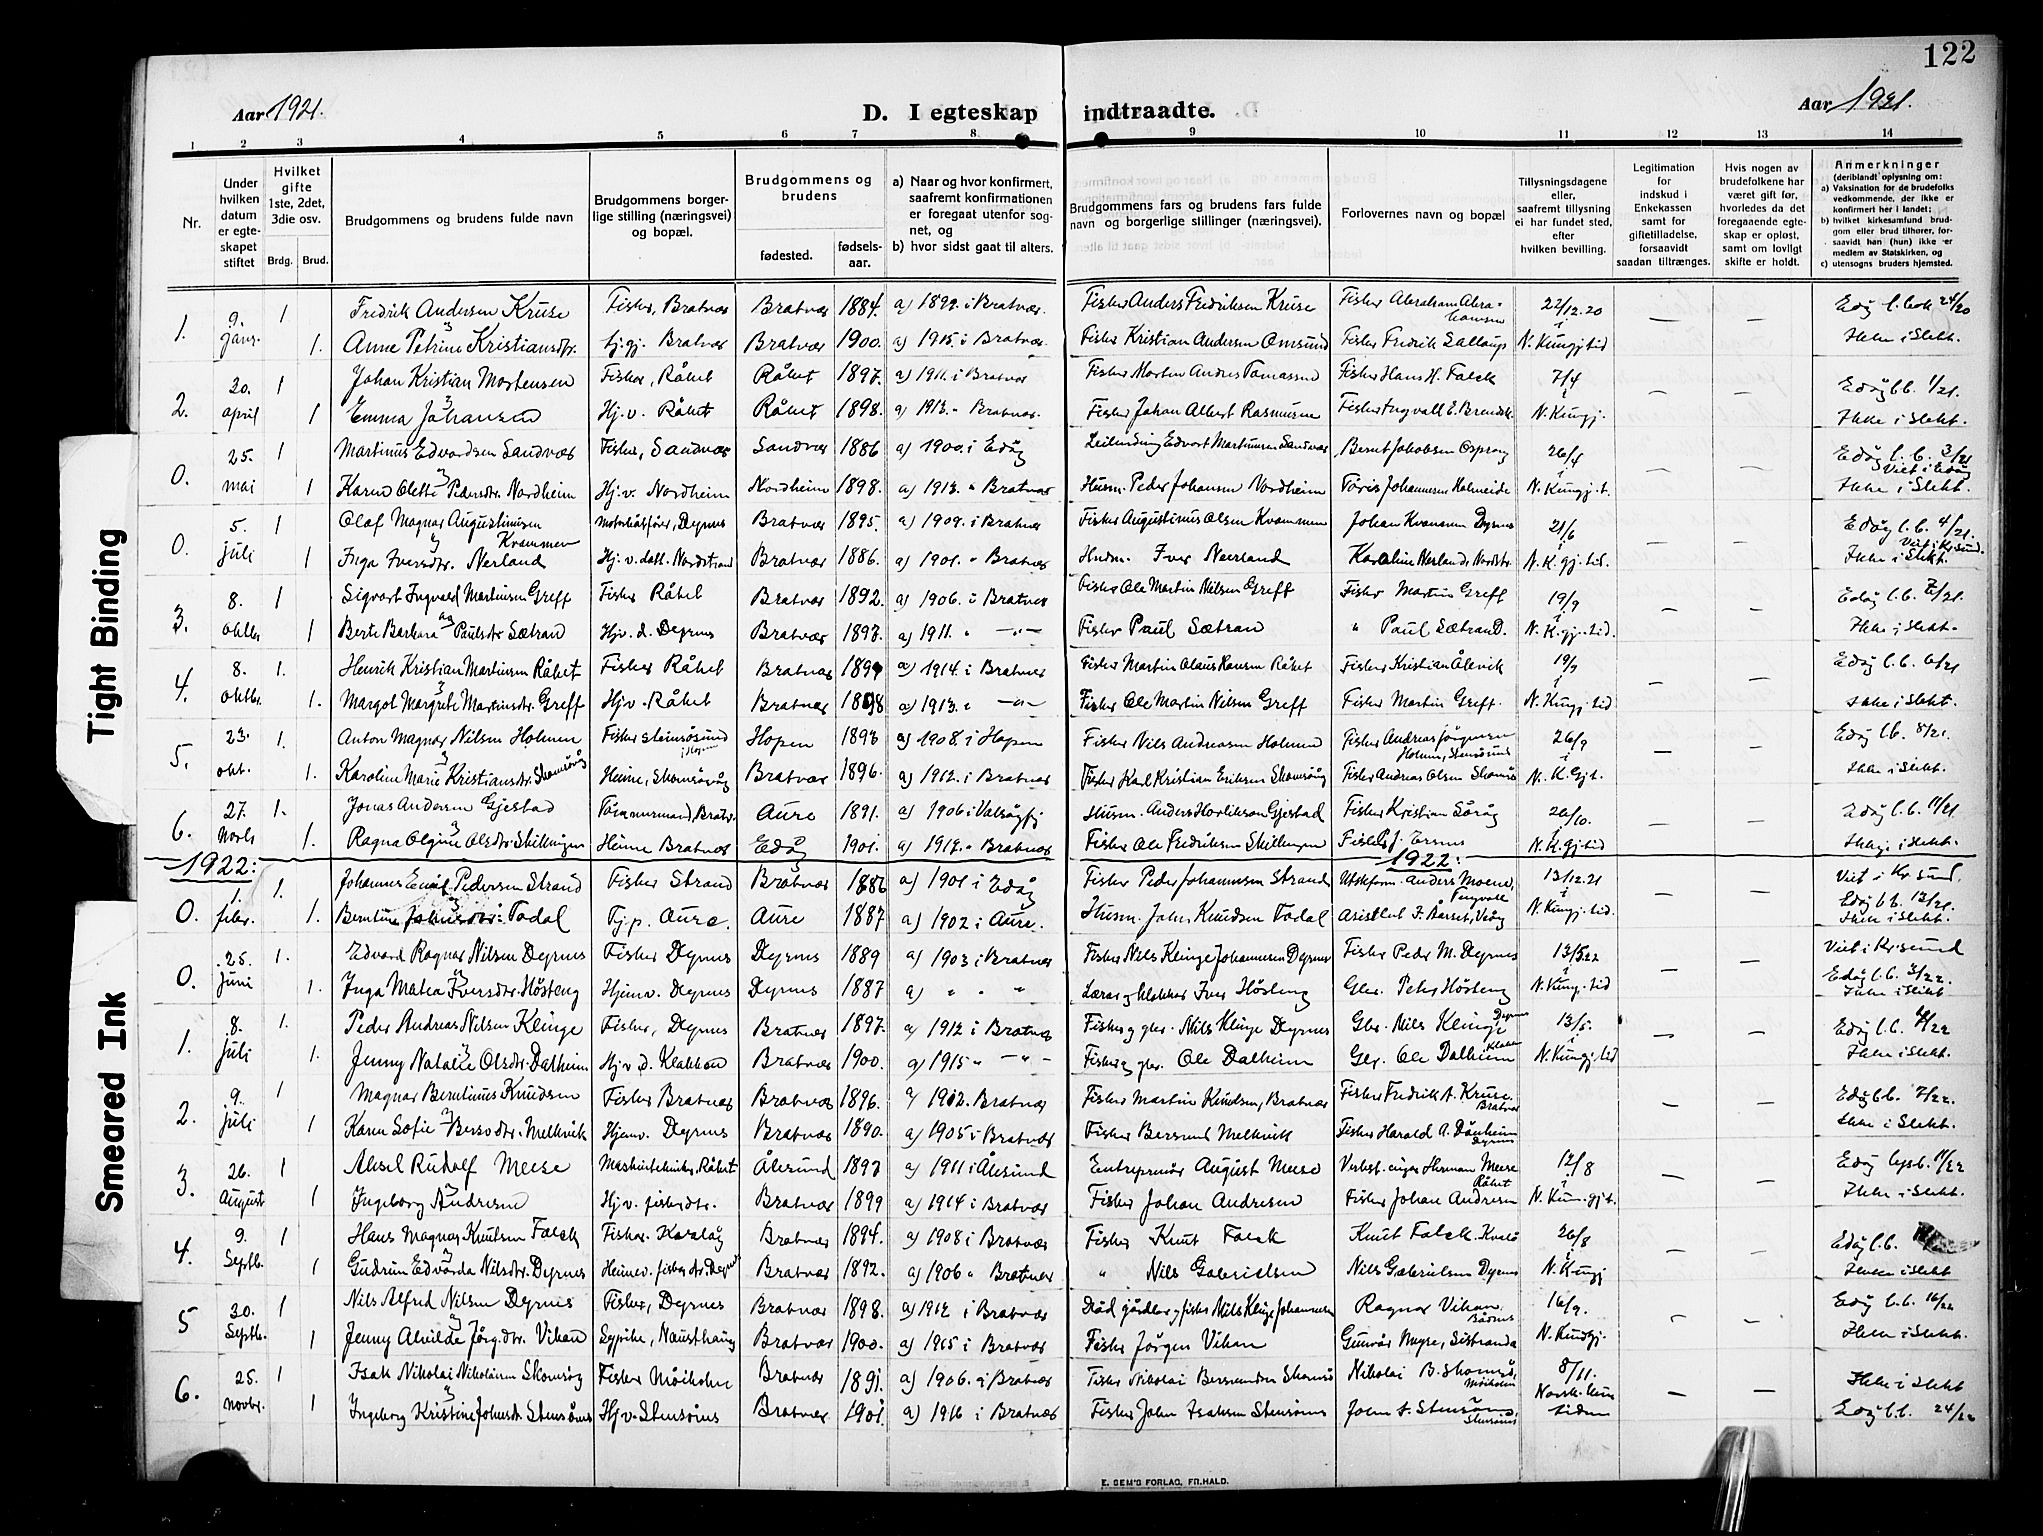 122
Aar 1921.
D. I egteskap indtraadte.
Aar 1921.
1 2 3 4 5 6 7 8 9 10 11 12 13 14
Nr.
Under hvilken datum er egteskapet stiftet
Hvilket gifte 1ste, 2det, 3die osv.
Brdg. Brud.
Brudgommens og brudens fulde navn
Brudgommens borgerlige stilling (næringsvei) og bopæl.
Brudgommens og brudens
fødested.
fødselsaar.
a) Naar og hvor konfirmert, saafremt konfirmationen er foregaat utenfor sognet, og
b) hvor sidst gaat til alters.
Brudgommens fars og brudens fars fulde navn og borgerlige stillinger (næringsvei).
Forlovernes navn og bopæl
Tillysningsdagene eller, saafremt tillysning ei har fundet sted, efter hvilken bevilling.
Legitimation for indskud i Enkekassen samt for giftetilladelse, forsaavidt saadan tiltrænges.
Hvis nogen av brudefolkene har været gift før, hvorledes da det foregaaende egteskap er opløst, samt om lovligt skifte er holdt.
Anmerkninger (deriblandt oplysning om:
a) Vaksination for de brudefolks vedkommende, der ikke er konfirmert her i landet;
b) hvilket kirkesamfund brudgom eller brud tilhører, forsaavidt han (hun) ikke er medlem av Statskirken, og
c) utensogns bruders hjemsted.
1. 9. 1 Fredrik Andersen Kruse Fisker, Bratvær Bratvær 1884. a) 1899. i Bratvær. Fisker Anders Fredriksen Kruse Fisker Abraham Abrahamsen 22/12.20 — — Edøy l.bok 24/20
janr. 1. Anne Petrine Kristiansdtr. tj.gj. Bratvær Bratvær 1900. a) 1915. i Bratvær. Fisker Kristian Andersen Omsund Fisker Fredrik Lallaug N. Kungj.tid Ikke i Slekt.
2. 20. 1 Johan Kristian Mortensen Fisker, Råket Råket 1897. a) 1911. i Bratvær Fisker Morten Andreas Tomassen Fisker Hans H. Falck 7/4 — — Edøy l.b. 1/21.
april 1 Emma Johansen Hj.v. Råket Råket 1898. a) 1913. " Bratvær. Fisker Johan Albert Rasmussen Fisker Ingvall E. N. Kungj. Ikke i Slekt.
0. 25. 1 Martinus Edvardsen Sandvær Fisker, Sandvær Sandvær 1886 a) 1900. i Edøy Edvart Martinusen Sandvær Bernt Jakobsen 26/4 — — Edøy l.b. 3/21 Viet i Edøy
mai 1 Karen Olette Pedersdtr. Nordheim Hj.v. Nordheim Nordheim 1898. a) 1913. " Bratvær Husm. Peder Johansen Nordheim Johannesen N. Kungj.t. Ikke i Slekt.
0. 5. 1 Olaf Magnar Augustinusen Kvammen Motorbåtfører, Dyrnes Bratvær 1895. a) 1909. i Bratvær Fisker Augustinus Olsen Kvammen Johan Dyrnes 21/6 — — Edøy l.b. 4/21. Viet i Kr.sund.
juli 1 Inga Iversdtr. Nerland Hj.v. datt. Nordstrand Bratvær 1886. a) 1901. " Bratvær Husm. Iver Neerland Karoline Nerland Nordstr. N. K.gj.tid. Ikke i Slekt.
3. 8. 1 Sigvart Ingvald Martinsen Greff Fisker Råket Bratvær 1892. a) 1906. i Bratvær Fisker Ole Martin Nilsen Greff Fisker Martin Greff 19/9 — — Edøy l.b. 7/21.
oktbr 1 Berte Barbara og Paulsdtr Sætran Hjv. d. Dyrnes Bratvær 1893. a) 1911. " —"— Fisker Paul Sætran " Paul Sætrand. N. K.gj.tid. Ikke i Slekt.
4. 8. 1. Henrik Kristian Martinsen Råket Fisker Råket Bratvær a) 1914. i Bratvær Fisker Martin Olaus Hansen Råket Fisker Kristian Ålevik 19/9 — — Edøy l.b. 6/21
oktbr. 1. Margot Margrete Martinsdtr. Greff Hjv. Råket Bratvær 1898 a) 1913. " —"— Fisker Ole Martin Nilsen Greff Fisker Martin Greff. N. Kungj.tid Ikke i Slekt.
5. 23. 1. Anton Magnar Nilsen Holmen Fisker Stensøsund i Hopen Hopen 1893 a) 1908. i Hopen Fisker Nils Andreasen Holmen Fisker Andreas Jörgensen Holmen, Stensøsund 26/9 — — Edøy l.b. 8/21.
okt. 1. Karoline Marie Kristiansdtr. Skomsøy Heime, Skomsøy Bratvær 1896. a) 1912. i Bratvær Fisker Karl Kristian Eriksen Skomsøy Fisker Andreas Olsen Skomsø N. K.gj.t. Ikke i Slekt.
6. 27. 1. Jonas Andersen Gjestad Tömmermand, Bratv. Aure 1891. a) 1906 i Valsøyfj Husm. Anders Gjestad Fisker Kristian Sörøy 26/10. — — Edøy l.b. 11/21
Novbr 1. Ragna Olgine Olsdtr. Skillingen Heime Bratvær Edøy 1901. a) 1917. " Bratvær Fisker Ole Fredriksen Skillingen Fisker J. N. K.gj.tid Ikkje i slekt.
1922: 1922:
0. 1. 1. Johannes Emil Pedersen Strand Fisker Strand Bratvær 1886 a) 1901 i Edøy Fisker Peder Johannesen Strand Utskiftform. Anders Moene, 13/12.21 — — Viet i Kr.sund.
febr. 1. Berntine Johnsdtr. Todal Tj.p. Aure. Aure 1887 a) 1902 i Aure. Husm. John Knudsen Todal Asistent Ingvall N. Kungj. tid. Edøy l.b. 12/21. Ikke i Slekt.
0. 25. 1. Edvard Ragnar Nilsen Dyrnes Fisker Dyrnes Dyrnes 1889 a) 1903 i Bratvær Fisker Nils Klinge Johannesen Dyrnes Fisker Peder M. Dyrnes 13/5 22 — — Viet i Kr.sund
Juni 1. Inga Matea Iversdtr. Høsteng Hjemv. Dyrnes Dyrnes 1887 a) " " " Lærer og klokker Iver Høsteng Gbr. Peter Høsteng N. Kungj. tid Edøy l.b. 3/22. Ikke i Slekt
1. 8. 1. Peder Andreas Nilsen Klinge Fisker, Dyrnes Bratvær 1897. a) 1912 i Bratvær Fisker og gbr. Nils Klinge Dyrnes Gbr. Nils Klinge Dyrnes 13/5. — — Edøy l.b.
Juli 1. Jenny Natalie Olsdtr. Dalheim Hj.v d. Klakken Bratvær 1900. a) 1915 " —"— Fisker og gbr. Ole Dalheim Gbr. Ole Dalheim Klakken N. Kungj. tid Ikke i Slekt.
2. 9. 1 Magnar Berntinus Knudsen Fisker Bratvær Bratvær 1896. a) 1912. Bratvær Fisker Martin Knudsen, Bratvær Fisker Fredrik A. Kruse. Bratvær — — Edøy l.b. 7/22.
juli 1 Karen Sofie Bersvdtr. Melkvik Hjemv. Dyrnes Bratvær 1890. a) 1905 i Bratvær Fisker Bersvend Melkvik Fisker Harald A. Dönheim Dyrnes Ikke i Slekt.
3. 26. 1 Aksel Rudolf Meese Maskintekniker, Råket Ålesund 1893 a) 1911 i Ålesund Entreprenør August Meese Herman Meese Råket 12/8 — — Edøy lysb. 11/22
August 1 Ingeborg Andresen Hj.v. fiskerdtr. Bratvær 1899 a) 1914 i Bratvær Fisker Johan Andresen Fisker Johan Andresen N. Kun.gj.t. Ikke i Slekt.
4. 9. 1 Hans Magnar Knutsen Falck Fisker. Bratvær 1894. a) 1908 i Bratvær Fisker Knut Falck Knut Falck. 26/8 — — Edøy l.b.
Septb. 1 Gudrun Edvarda Nilsdtr. Dyrnes Heimev. fiskerdtr. Dyrnes Bratvær 1892. a) 1906 " Bratvær " Nils Gabrielsen Nils Gabrielsen Dyrnes N. Kungj Ikkee i Slekt
5 30. 1 Nils Alfred Nilsen Dyrnes Fisker, Dyrnes Bratvær 1898. a) 1912 i Bratvær Död gårdbr og fisker Nils Klinge Johannesen Ragnar Vikan 16/9. — — Edøy l.b. 16/22
Septb. 1 Jenny Alvilde Jörg.dtr. Vikan Bratvær 1900. a) 1915 i Bratvær Fisker Jörgen Vikan Gunvor Meyer, Sistranda N. Kundgj. Ikke i Slekt.
6. 25. 1 Isak Nikolai Nikolaisen Skomsøy Fisker Möiholm Bratvær 1891. a) 1906. i Bratvær Fisker Nikolai Bersvendsen Skomsö Nikolai B. Skomsö, Möiholm 8/11. — — Ikke i Slekt
novbr. 1 Ingeborg Kristine Johnsdtr Stensönes Hj.v. Stensönes Bratvær 1901. a) 1916 i Bratvær Fisker John Isaksen Stensönes John I. Stensönes Stensönes Norsk. Kun tiden Edøy l.b. 24/22
E. SEM'S FORLAG, FR.HALD.
Tight Binding
Smeared Ink